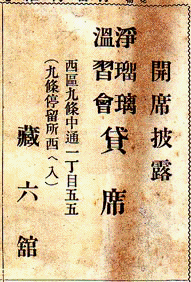 開席披露
淨瑠璃
溫習會
貸席
西區九條中通一丁目五五
(九條停留所西ヘ入)
藏六舘